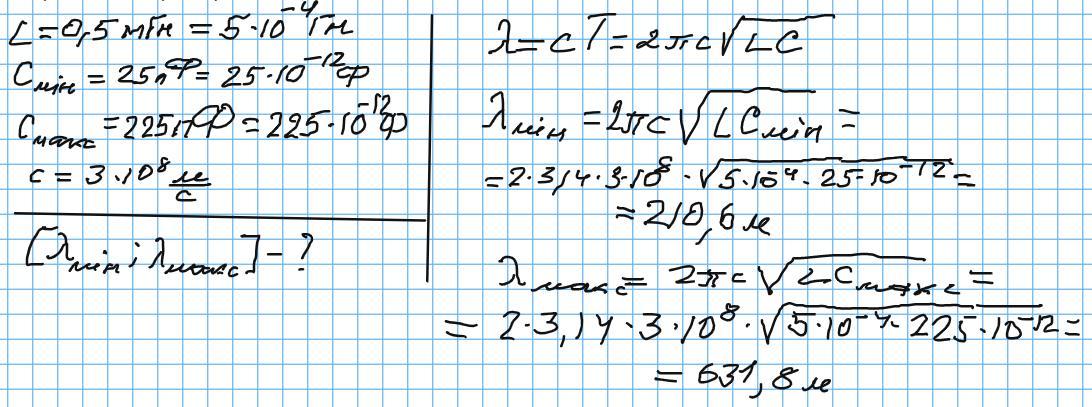 L = 0,5 мГн = 5·10⁻⁴ Гн
Cмін = 25пФ = 25·10⁻¹²Ф
Cмакс = 225пФ = 225·10⁻¹²Ф
c = 3·10⁸ м/с
[λмін ; λмакс] - ?
λ = cT = 2πc√LC
λмін = 2πc√LCмін =
= 2·3,14·3·10⁸·√5·10⁻⁴·25·10⁻¹² =
= 210,6 м
λмакс = 2πc√LCмакс =
= 2·3,14·3·10⁸·√5·10⁻⁴·225·10⁻¹² =
= 631,8 м